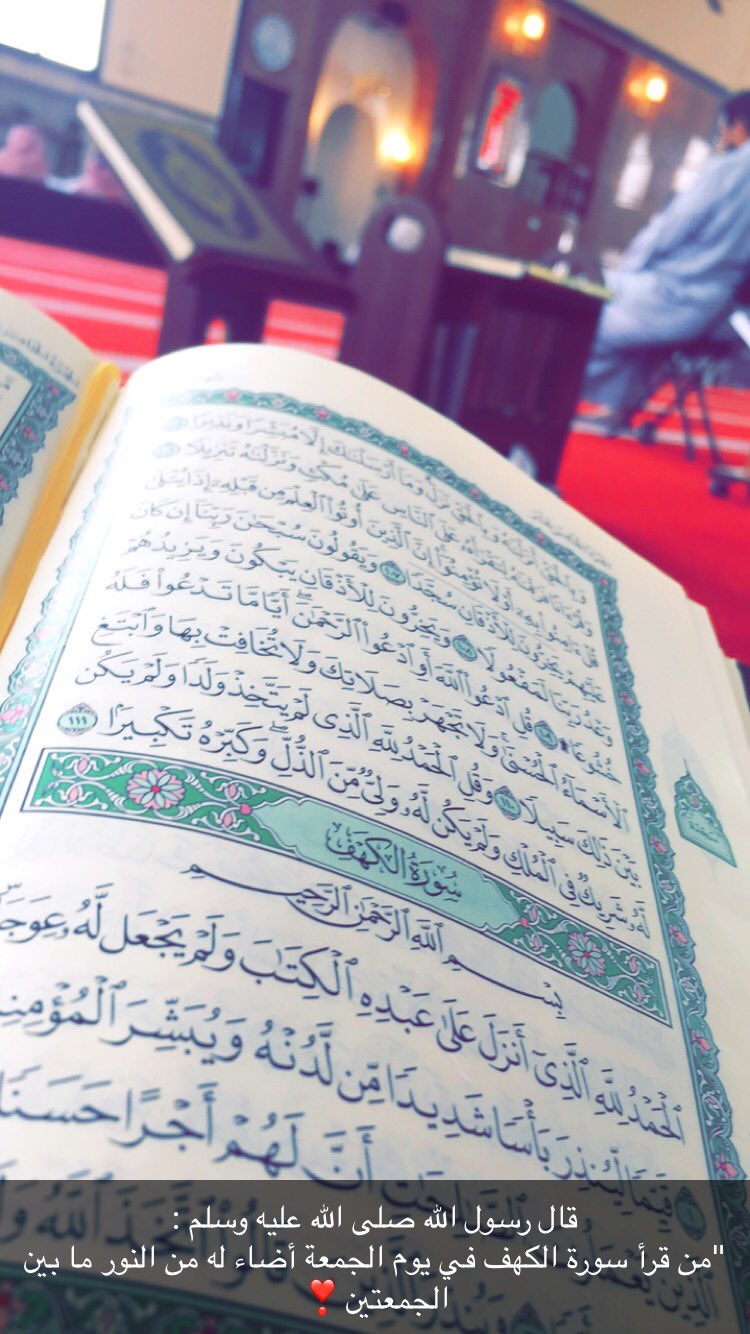 وَبِٱلْحَقِّ أَنزَلْنَٰهُ وَبِٱلْحَقِّ نَزَلَ وَمَآ أَرْسَلْنَٰكَ إِلَّا مُبَشِّرًا وَنَذِيرًا
وَقُرْءَانًا فَرَقْنَٰهُ لِتَقْرَأَهُۥ عَلَى ٱلنَّاسِ عَلَىٰ مُكْثٍ وَنَزَّلْنَٰهُ تَنزِيلًا
قُلْ ءَامِنُوا۟ بِهِۦٓ أَوْ لَا تُؤْمِنُوٓا۟ إِنَّ ٱلَّذِينَ أُوتُوا۟ ٱلْعِلْمَ مِن قَبْلِهِۦٓ إِذَا يُتْلَىٰ
عَلَيْهِمْ يَخِرُّونَ لِلْأَذْقَانِ سُجَّدًا ۝١٠٧ وَيَقُولُونَ سُبْحَٰنَ رَبِّنَآ إِن كَانَ
وَعْدُ رَبِّنَا لَمَفْعُولًا ۝١٠٨ وَيَخِرُّونَ لِلْأَذْقَانِ يَبْكُونَ وَيَزِيدُهُمْ
خُشُوعًا ۝١٠٩ قُلِ ٱدْعُوا۟ ٱللَّهَ أَوِ ٱدْعُوا۟ ٱلرَّحْمَٰنَ ۖ أَيًّا مَّا تَدْعُوا۟ فَلَهُ
ٱلْأَسْمَآءُ ٱلْحُسْنَىٰ ۚ وَلَا تَجْهَرْ بِصَلَاتِكَ وَلَا تُخَافِتْ بِهَا وَٱبْتَغِ
بَيْنَ ذَٰلِكَ سَبِيلًا ۝١١٠ وَقُلِ ٱلْحَمْدُ لِلَّهِ ٱلَّذِى لَمْ يَتَّخِذْ وَلَدًا وَلَمْ يَكُن
لَّهُۥ شَرِيكٌ فِى ٱلْمُلْكِ وَلَمْ يَكُن لَّهُۥ وَلِىٌّ مِّنَ ٱلذُّلِّ ۖ وَكَبِّرْهُ تَكْبِيرًۢا ۝١١١
سُورَةُ الكَهْفِ
بِسْمِ ٱللَّهِ ٱلرَّحْمَٰنِ ٱلرَّحِيمِ
ٱلْحَمْدُ لِلَّهِ ٱلَّذِىٓ أَنزَلَ عَلَىٰ عَبْدِهِ ٱلْكِتَٰبَ وَلَمْ يَجْعَل لَّهُۥ عِوَجَا
قَيِّمًا لِّيُنذِرَ بَأْسًا شَدِيدًا مِّن لَّدُنْهُ وَيُبَشِّرَ ٱلْمُؤْمِنِ
أَنَّ لَهُمْ أَجْرًا حَسَنًا
قال رسول الله صلى الله عليه وسلم :
"من قرأ سورة الكهف في يوم الجمعة أضاء له من النور ما بين
الجمعتين ❣️